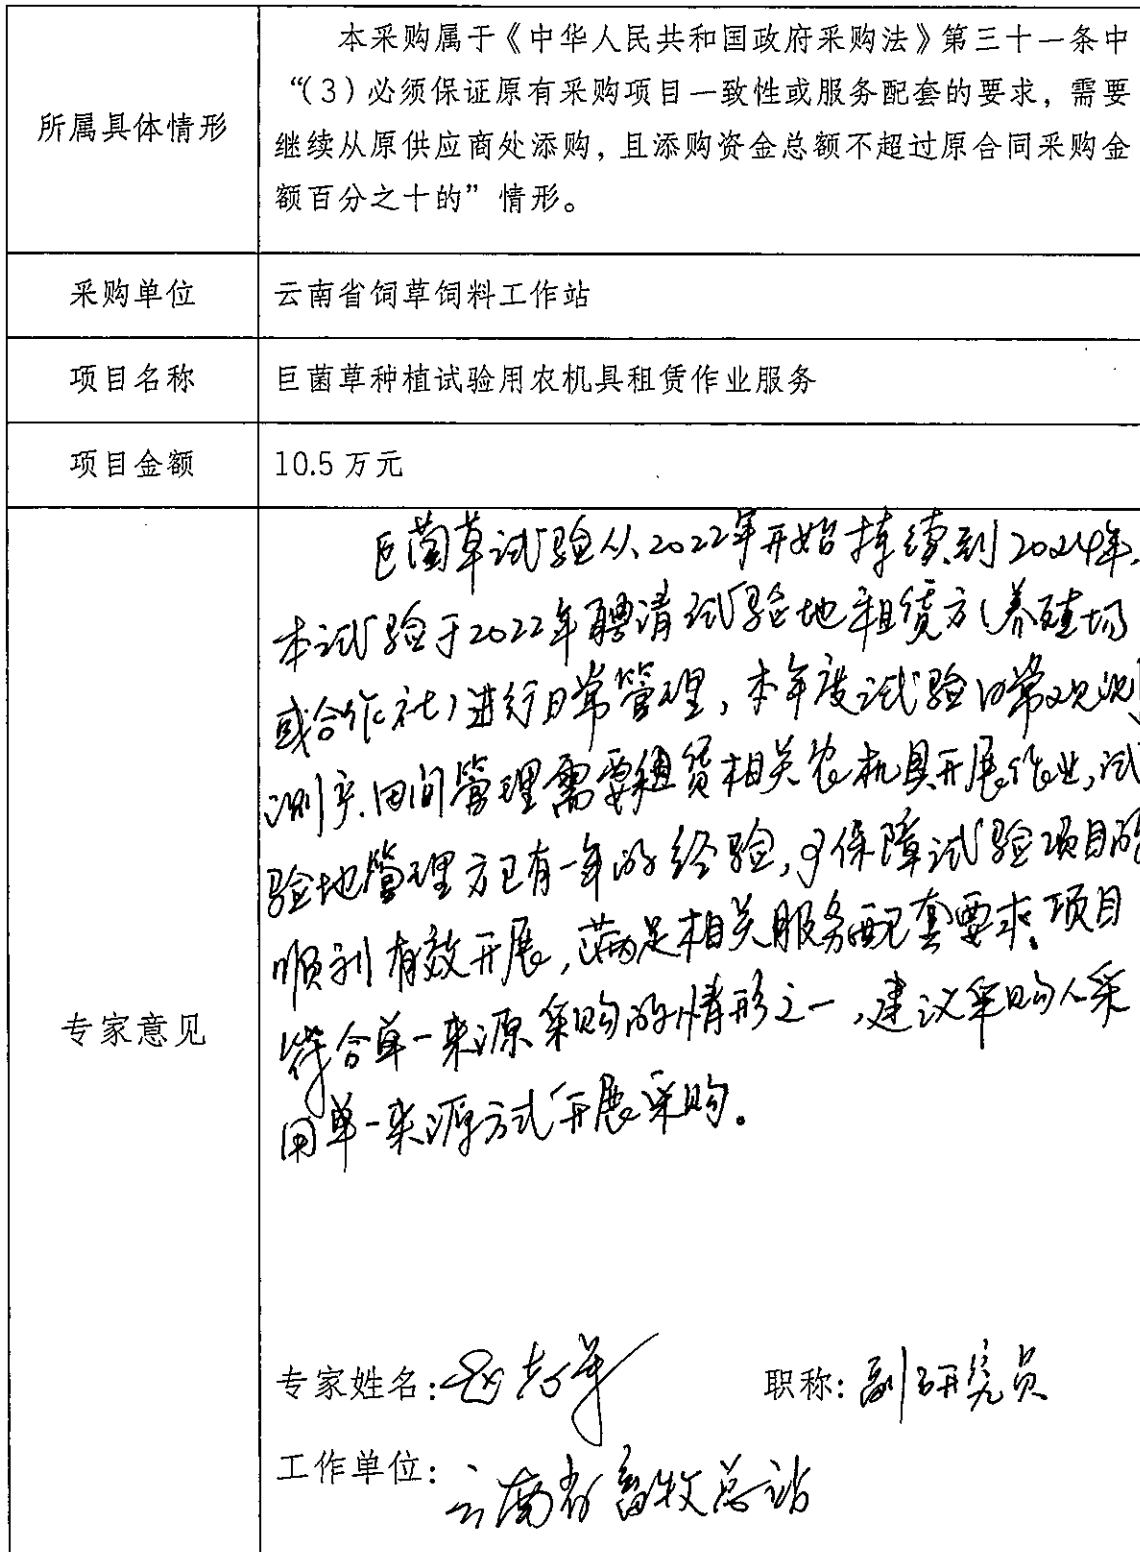 所属具体情形
本采购属于《中华人民共和国政府采购法》第三十一条中
“（3）必须保证原有采购项目一致性或服务配套的要求，需要
继续从原供应商处添购，且添购资金总额不超过原合同采购金
额百分之十的”情形。
采购单位
云南省饲草饲料工作站
项目名称
巨菌草种植试验用农机具租赁作业服务
项目金额
10.5 万元
专家意见
巨菌草试验从2022年开始持续到2024年,
本试验于2022年聘请试验地租赁方（养殖场
或合作社）进行日常管理，本年度试验日常观测、
测产、田间管理需要租赁相关农机具开展作业，试
验地管理方已有一年的经验，可保障试验项目的
顺利有效开展，满足相关服务配套要求。项目
符合单一来源采购的情形之一，建议采购人采
用单一来源方式开展采购。
专家姓名：
职称：副研究员
工作单位：云南省畜牧总站